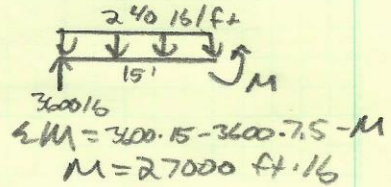 240 lb/ft
15'
M
3600 lb
ΣM = 3600·15 - 3600·7.5 - M
M = 27000 ft·lb